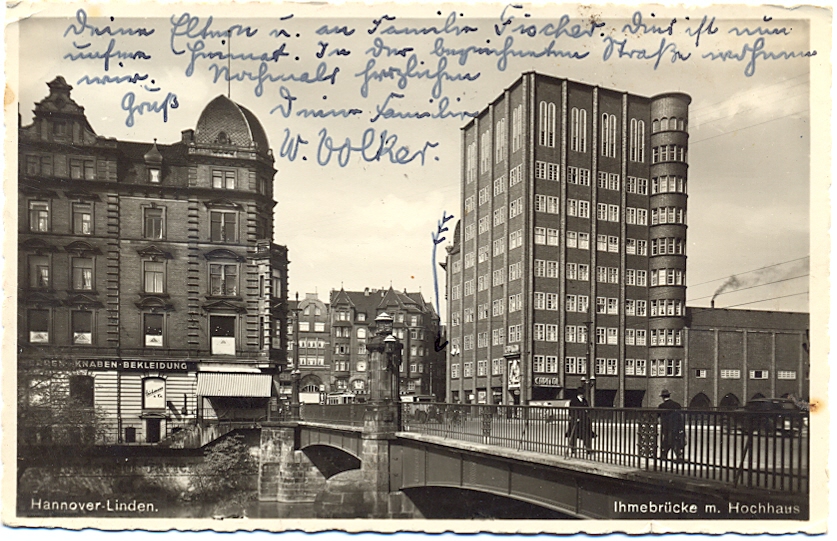 Deine Eltern u. an Familie Fischer. Dies ist nun
unsere Heimat. In der bezeichneten Straße wohnen
wir. Nochmals herzlichen
Gruß Deine Familie
W. Volker.
KNABEN-BEKLEIDUNG
Hannover-Linden.
Ihmebrücke m. Hochhaus